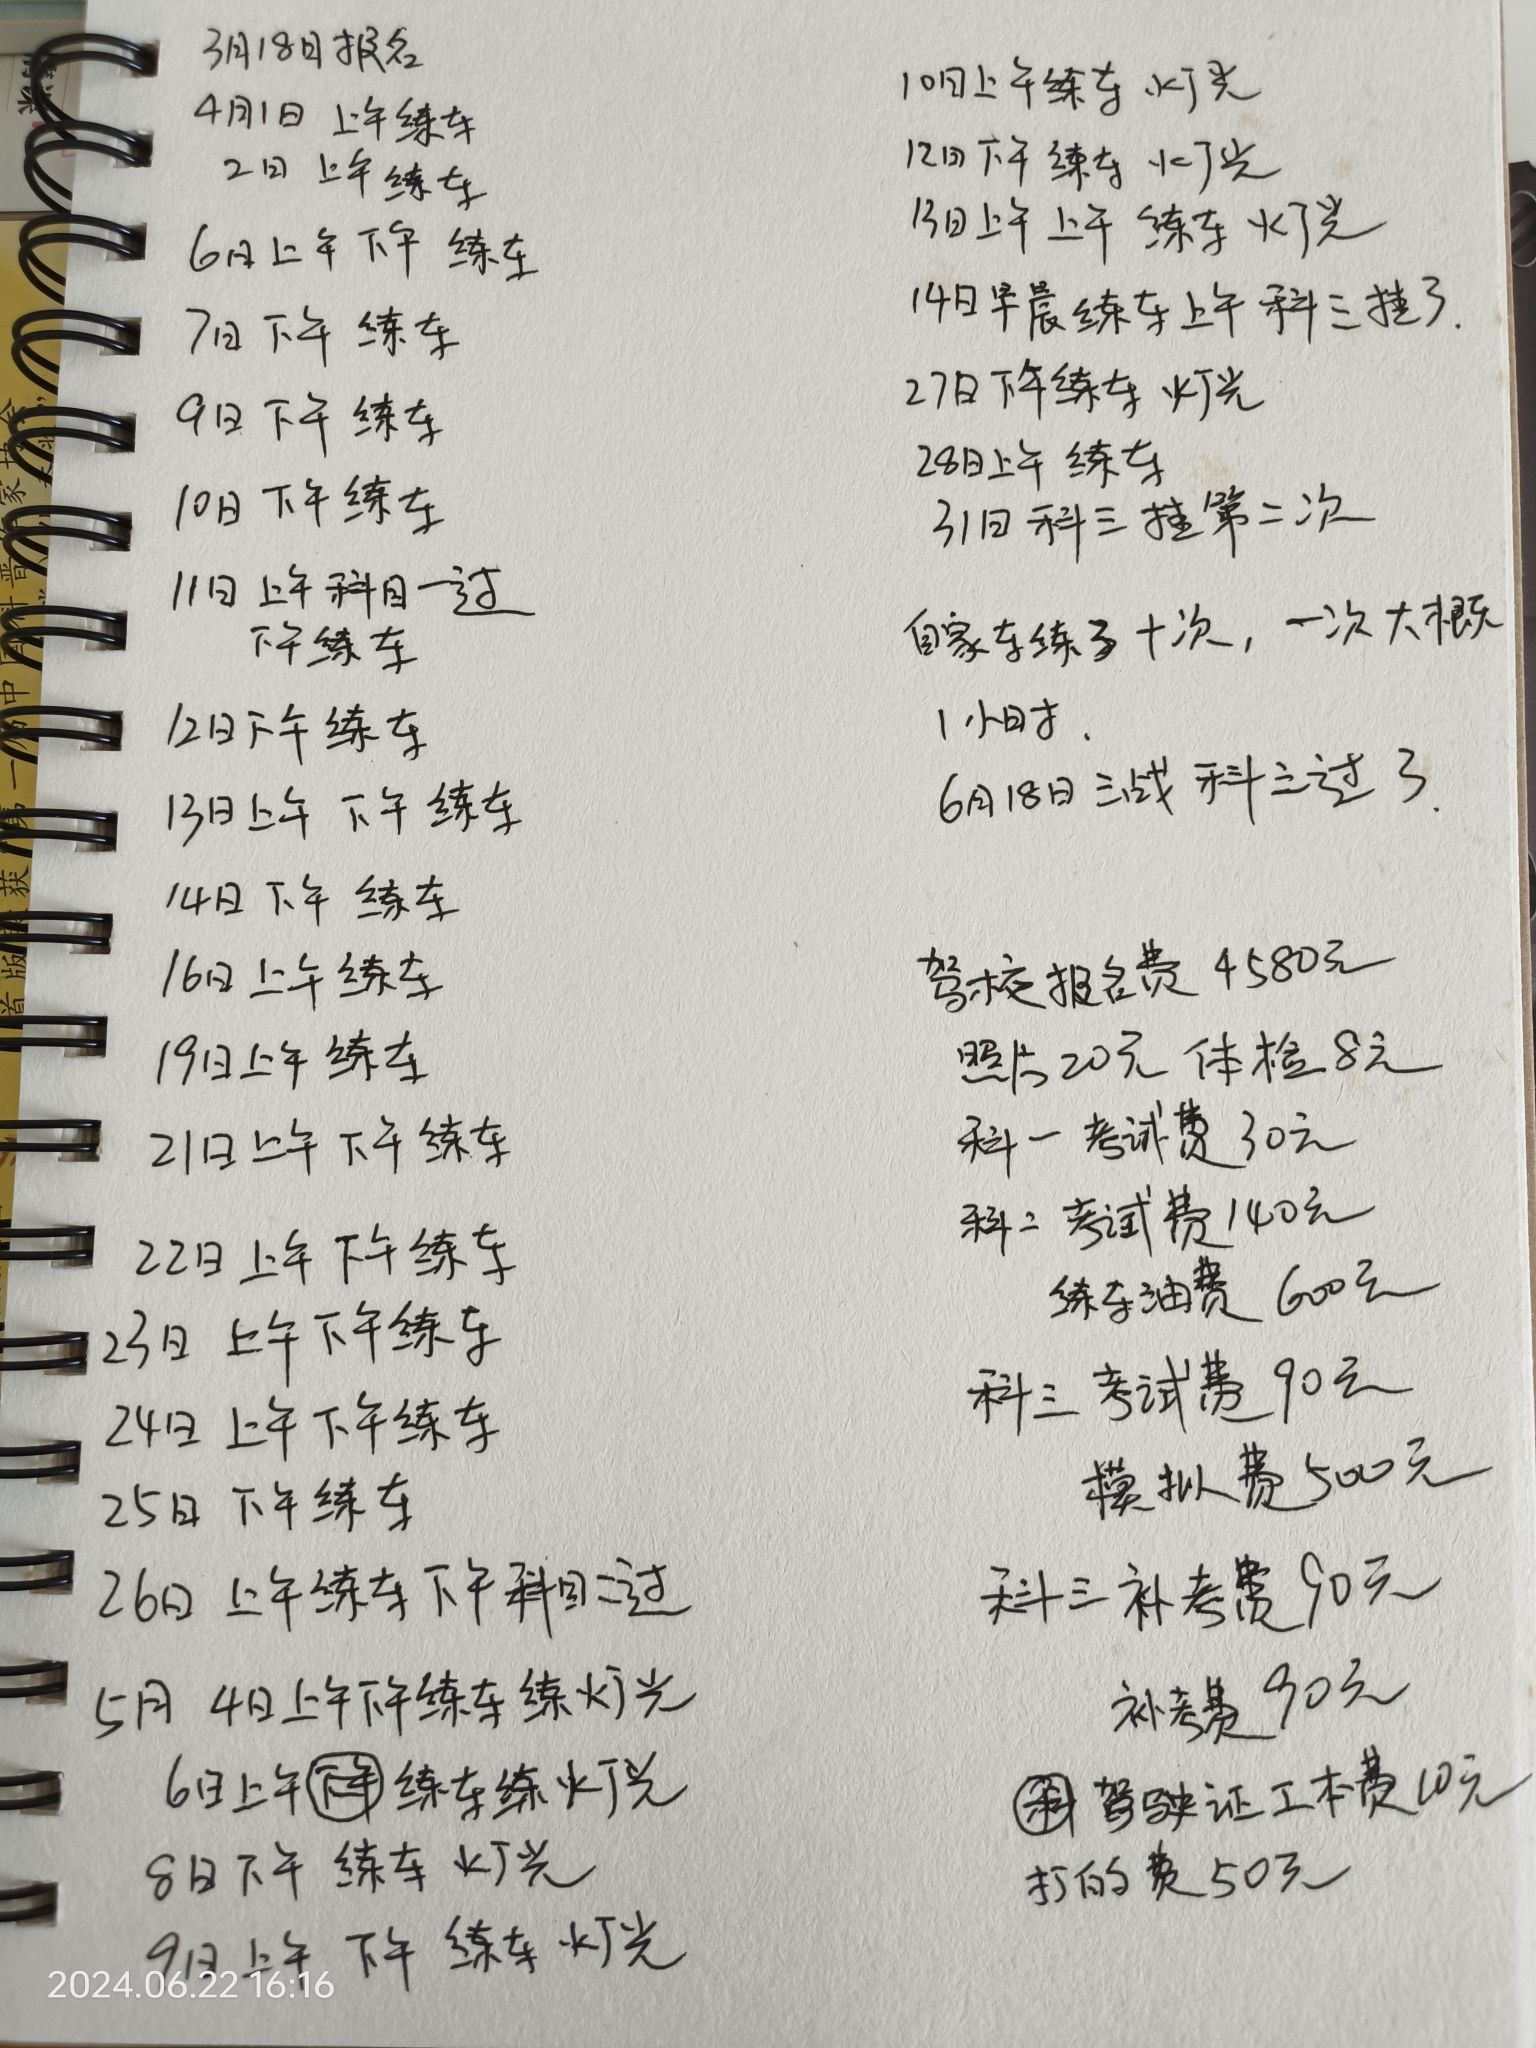 3月18日报名
4月1日 上午练车
2日 上午练车
6日上午 下午 练车
7日 下午 练车
9日 下午 练车
10日 下午练车
11日 上午科目一过
下午练车
12日下午练车
13日上午 下午 练车
14日 下午 练车
16日上午练车
19日上午 练车
21日上午 下午 练车
22日上午 下午练车
23日 上午下午练车
24日 上午下午练车
25日 下午练车
26日 上午练车下午科目二过
5月 4日上午下午练车练灯光
6日上午下午练车练灯光
8日下午 练车 灯光
9日上午 下午 练车 灯光
10日上午练车 灯光
12日下午练车 灯光
13日上午 上午 练车 灯光
14日早晨练车上午科三挂了.
27日下午练车 灯光
28日上午 练车
31日科三挂第二次
自家车练了十次,一次大概
1小时.
6月18日三战科三过了.
驾校报名费4580元
照片20元 体检8元
科一考试费30元
科二考试费140元
练车油费 600元
科三考试费90元
模拟费500元
科三补考费90元
补考费90元
科 驾驶证工本费10元
打的费50元
2024.06.22 16:16